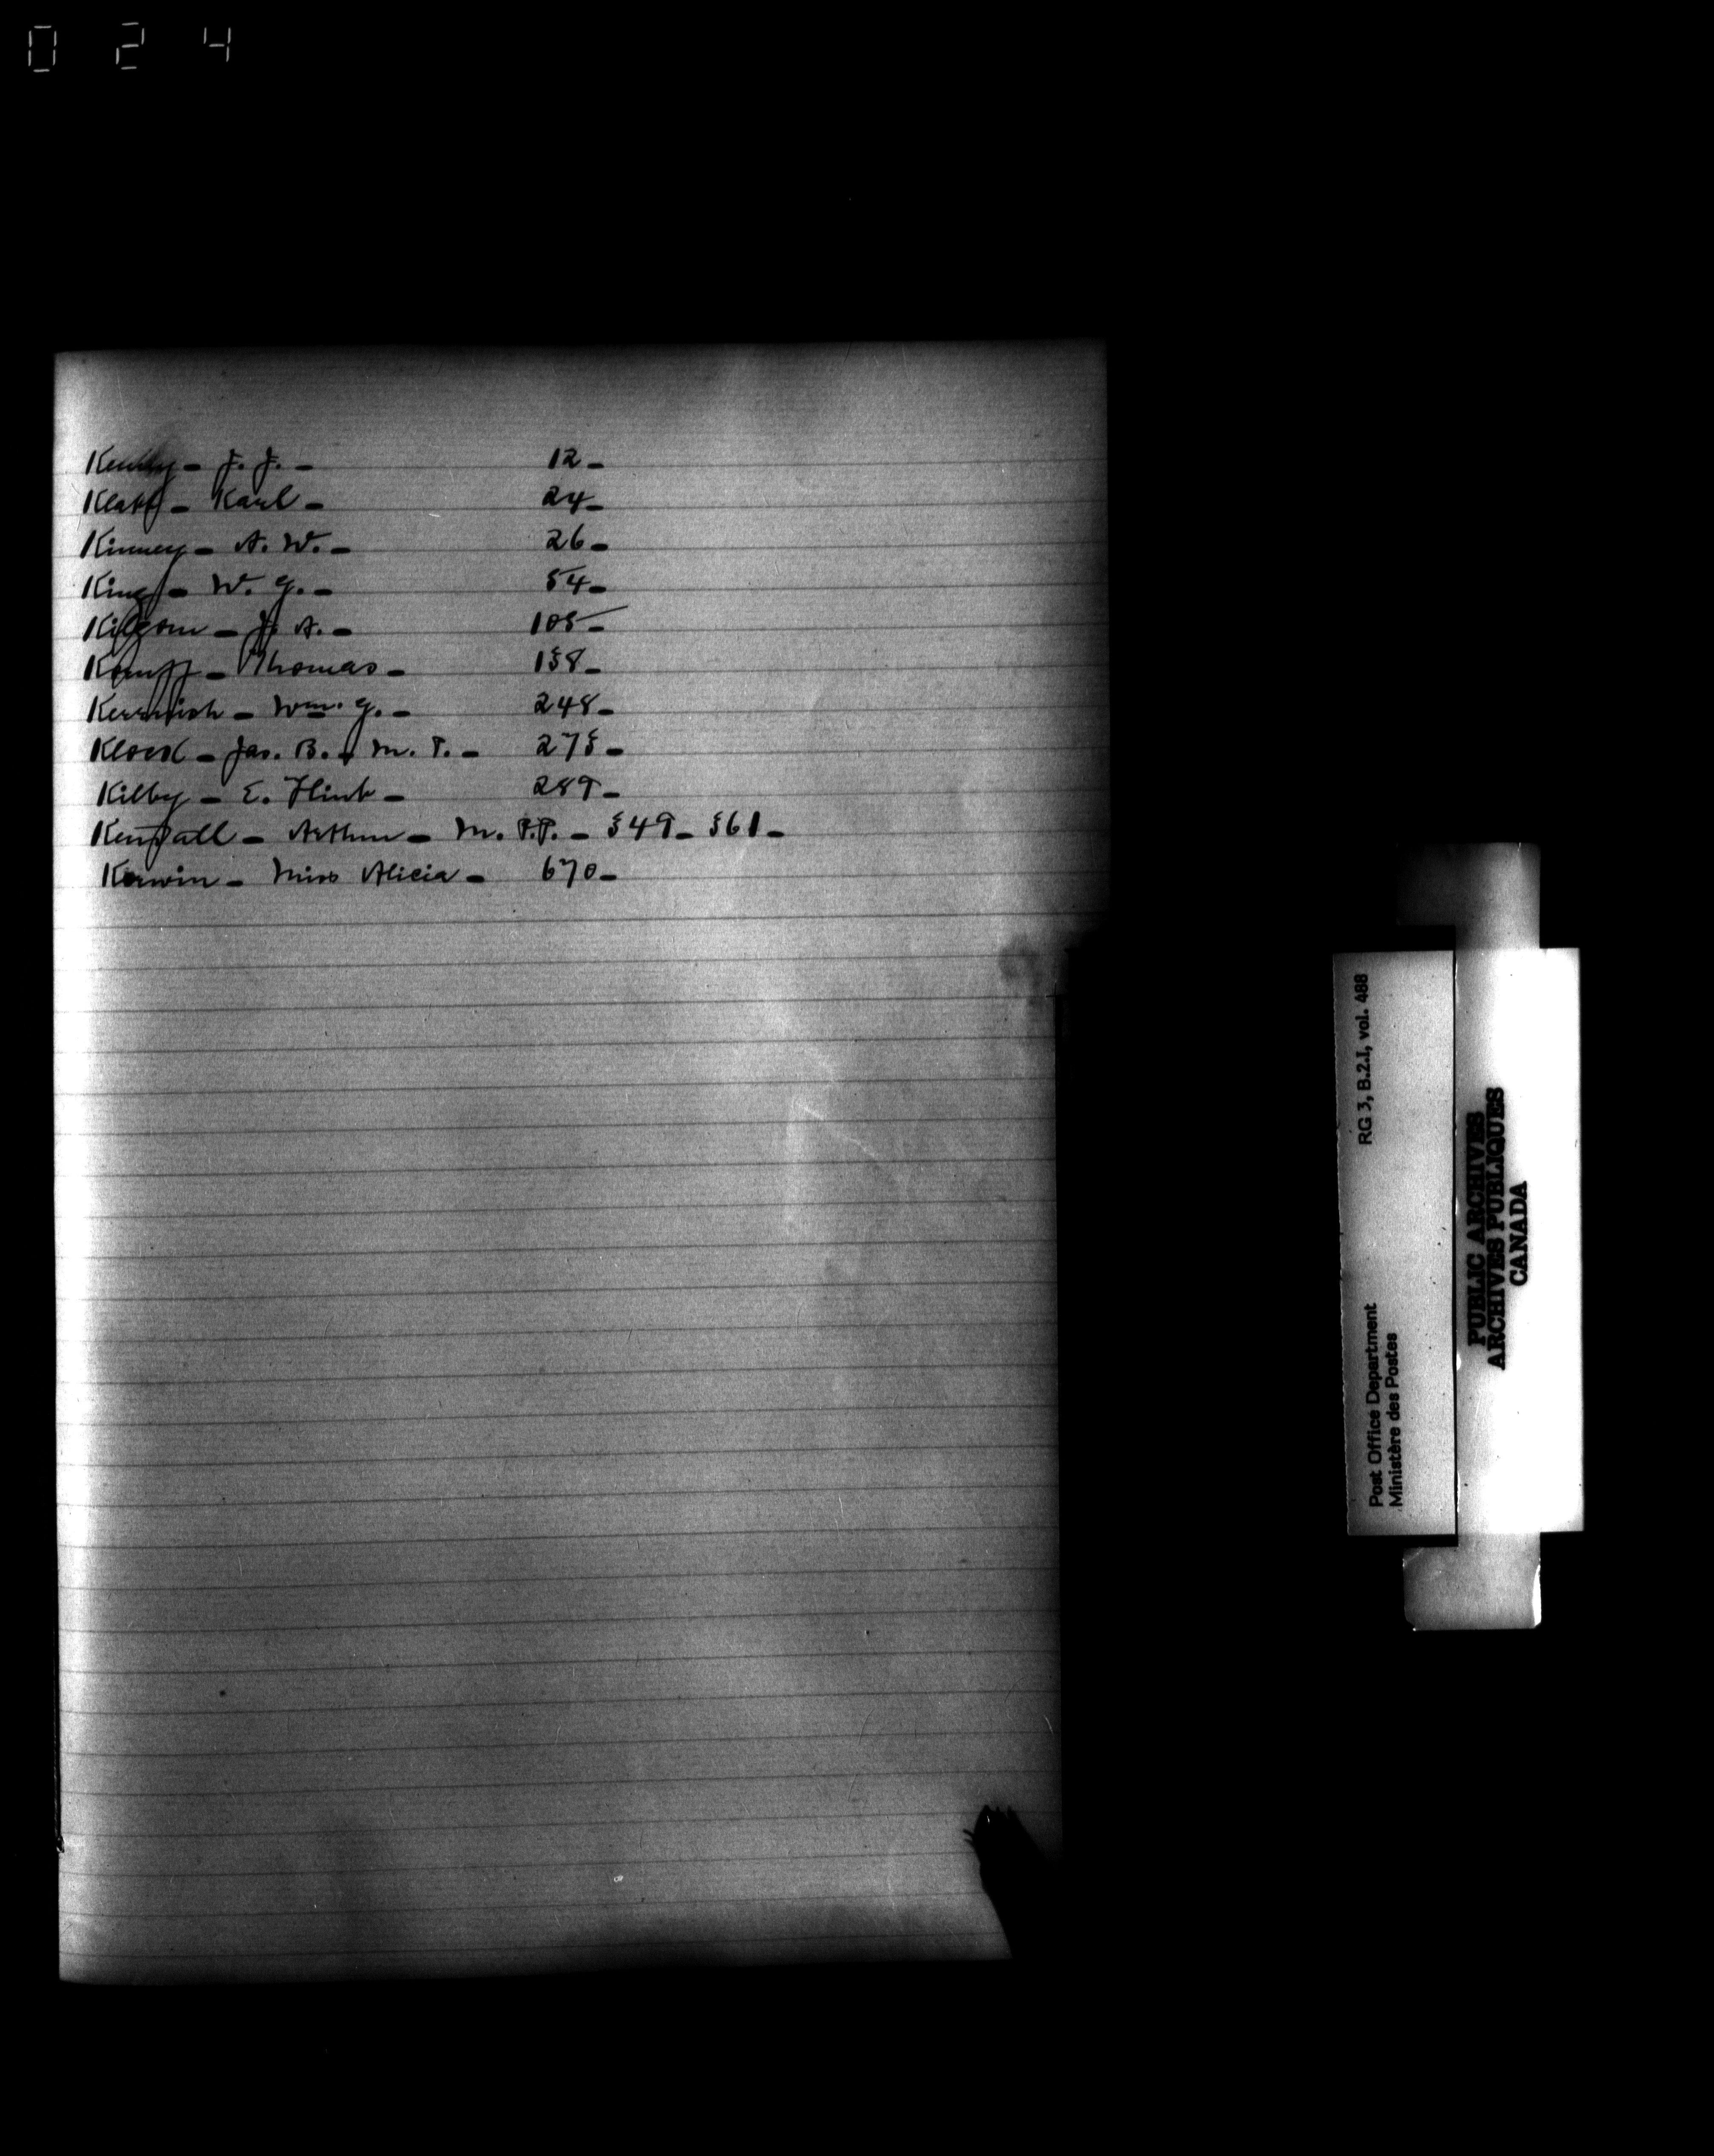 0 2 4
Kenny - J. J. - 12 -
Klatt - Karl - 24 -
Kinney - A. W. - 26 -
King - W. G. - 54 -
Kilgour - J. A. - 105 -
Thomas - 158 -
Wm. G. - 248 -
Klock - Jas. B. - M. P. - 275 -
Kilby - E. Flint - 289 -
Kendall - Arthur - M. P.P. - 549 - 561 -
Kerwin - Miss Alicia - 670 -
RG 3, B.2.I, vol. 488
Post Office Department
Ministère des Postes
PUBLIC ARCHIVES
ARCHIVES PUBLIQUES
CANADA